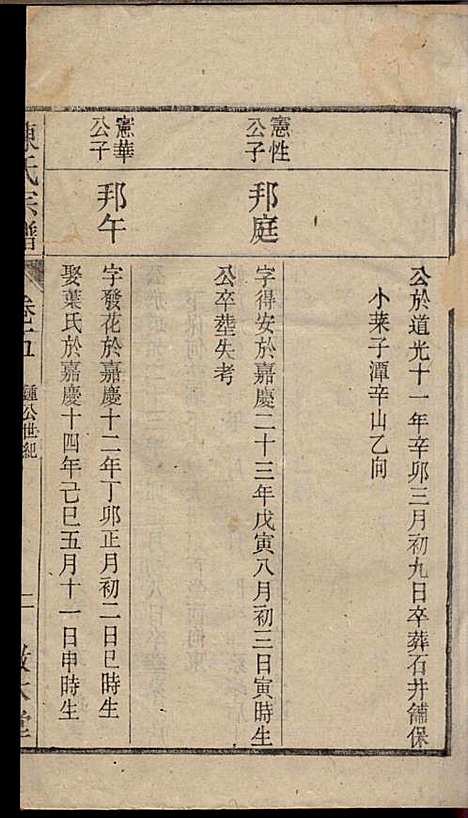 公於道光十一年辛卯三月初九日卒葬石井舖保
小萊子潭辛山乙向
憲性
公子
邦庭
字得安於嘉慶二十三年戊寅八月初三日寅時生
公卒塟失考
憲華
公子
邦午
字發花於嘉慶十二年丁卯正月初二日巳時生
娶葉氏於嘉慶十四年己巳五月十一日申時生
陳氏宗譜
鍾公世紀